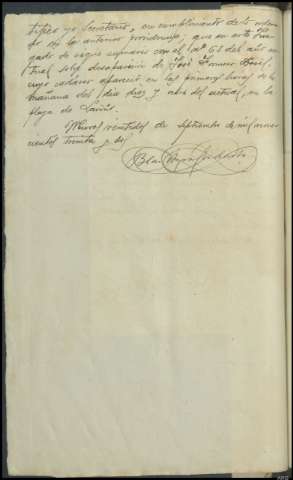 tifico yo Secretario, en cumplimiento de lo ordena-
do en la anterior providencia, que en este Juz-
gado se sigue sumario con el nº 63 del año ac-
tual sobre desaparición de José Fornis
cuyo cadáver apareció en las primeras horas de la
mañana del día diez y ocho del actual, en la
playa de
Muros veintidos de septiembre de mil nove-
cientos treinta y dos